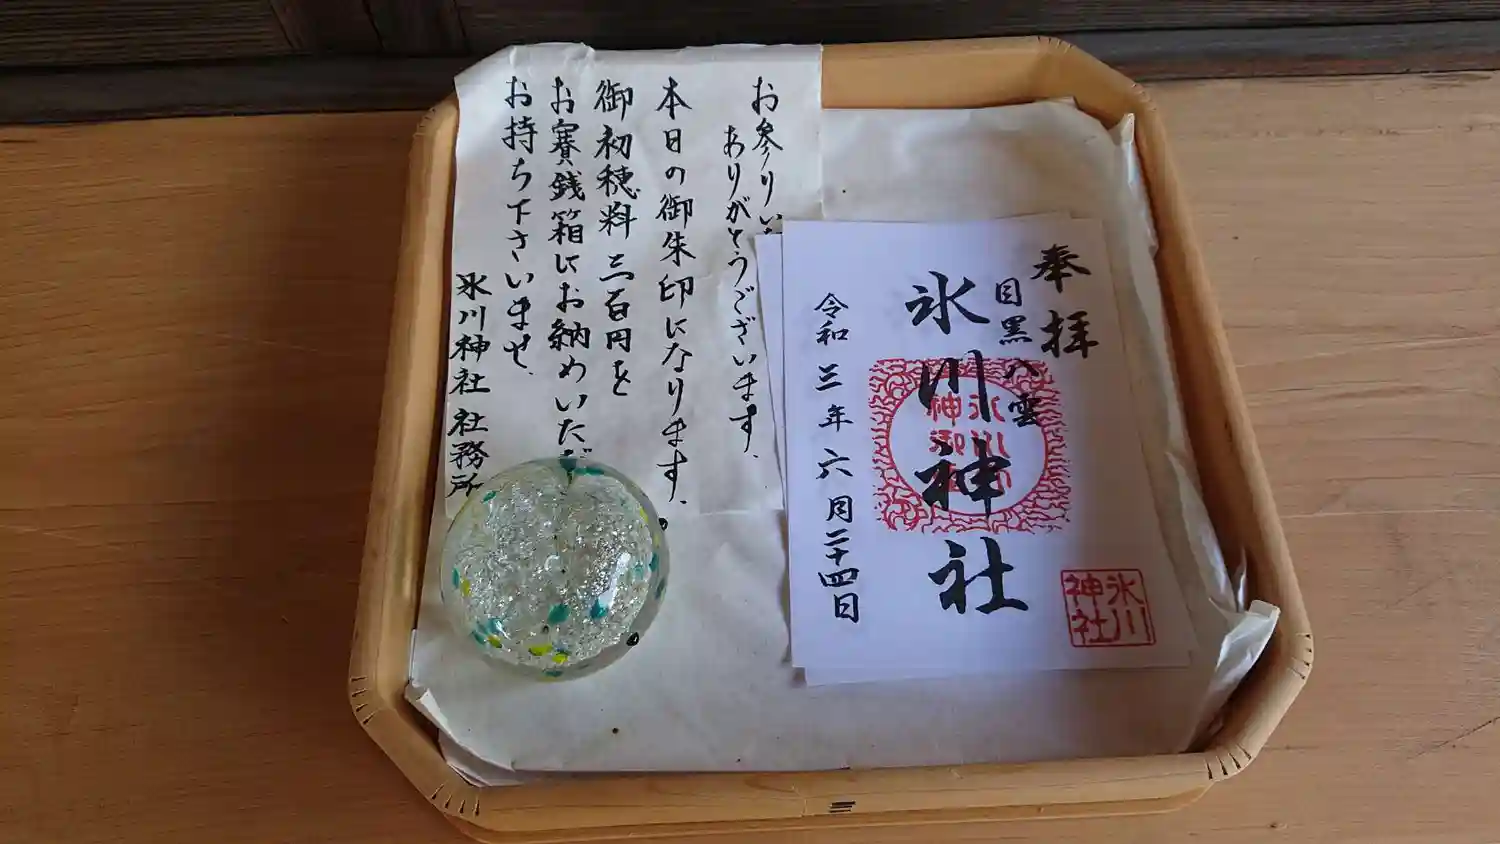 お参りい
ありがとうございます.
本日の御朱印になります.
御初穂料三百円を
お賽銭箱にお納めいただ
お持ち下さいませ.
氷川神社社務所
奉拝
目黒八雲
氷川神社
令和三年六月二十四日
氷川
神社